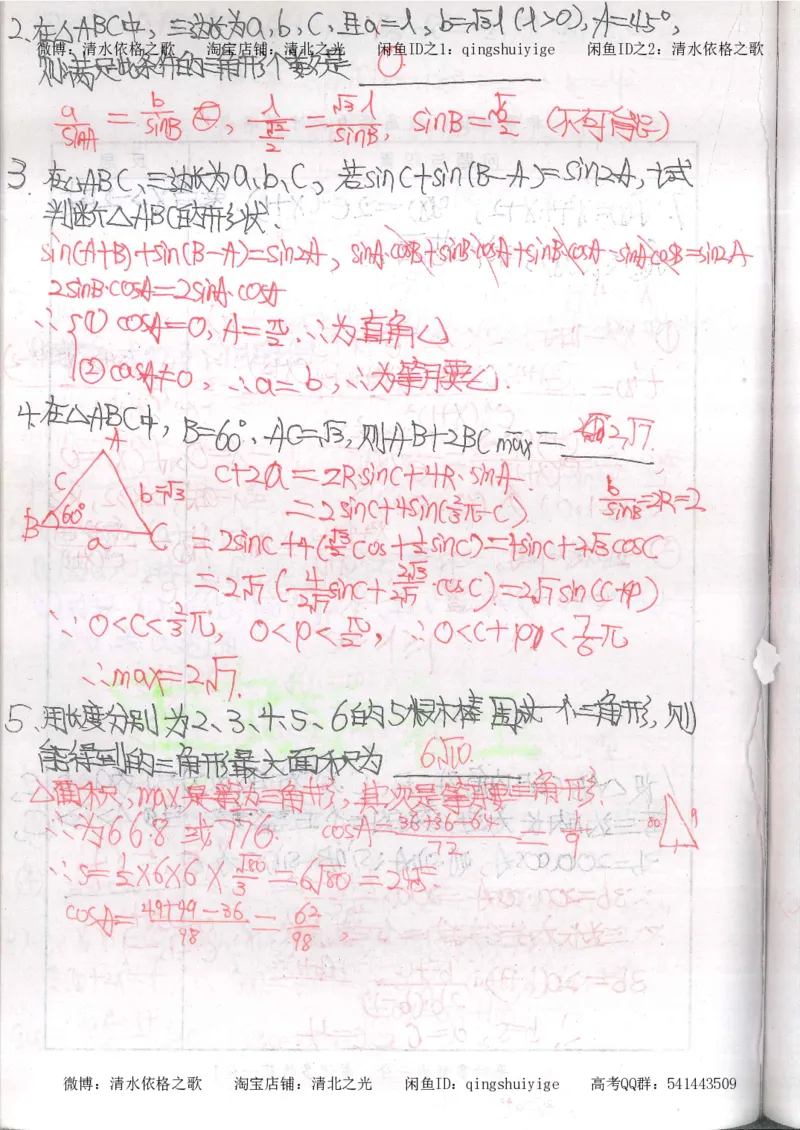 2. 在△ABC中, 三边长为a, b, c, 且a=λ, b=√3λ (λ>0), A=45°,
微博: 清水依格之歌 淘宝店铺: 清北之光 闲鱼ID之1: qingshuiyige 闲鱼ID之2: 清水依格之歌
则满足此条件的三角形个数是 0
a/sinA = b/sinB, λ/(√2/2) = √3λ/sinB, sinB=√6/2 (不可能)
3. 在△ABC, 三边长为a, b, c, 若sinC+sin(B-A)=sin2A, 试
判断△ABC的形状.
sin(A+B)+sin(B-A)=sin2A, sinA·cosB+sinB·cosA+sinB·cosA-sinAcosB=sin2A
2sinB·cosA=2sinA·cosA
∴{① cosA=0, A=π/2. ∴为直角△
② cosA≠0, ∴a=b, ∴为等腰△.
4. 在△ABC中, B=60°, AC=√3, 则AB+2BC max= 2√7.
A
c b=√3
B 60° a C
c+2a=2R·sinC+4R·sinA
b/sinB=2R=2
=2sinC+4sin(2/3π-C)
=2sinC+4(√3/2cosC+1/2sinC)=4sinC+2√3cosC
=2√7(4/2√7 sinC+2√3/2√7·cosC)=2√7sin(C+φ)
∵0<C<2/3π, 0<φ<π/2, ∴0<C+φ<7/6π
∴max=2√7.
5. 用长度分别为2、3、4、5、6的5根木棒围成一个三角形, 则
能得到的三角形最大面积为 6√10.
△面积, max是等边三角形, 其次是等腰三角形.
∴为6 6 8 或 7 7 6. cosA=(36+36-64)/72=1/9
∴S=1/2×6×6×√80/
cosA=(49+49-36)/98=62/98,
微博: 清水依格之歌 淘宝店铺: 清北之光 闲鱼ID: qingshuiyige 高考QQ群: 541443509